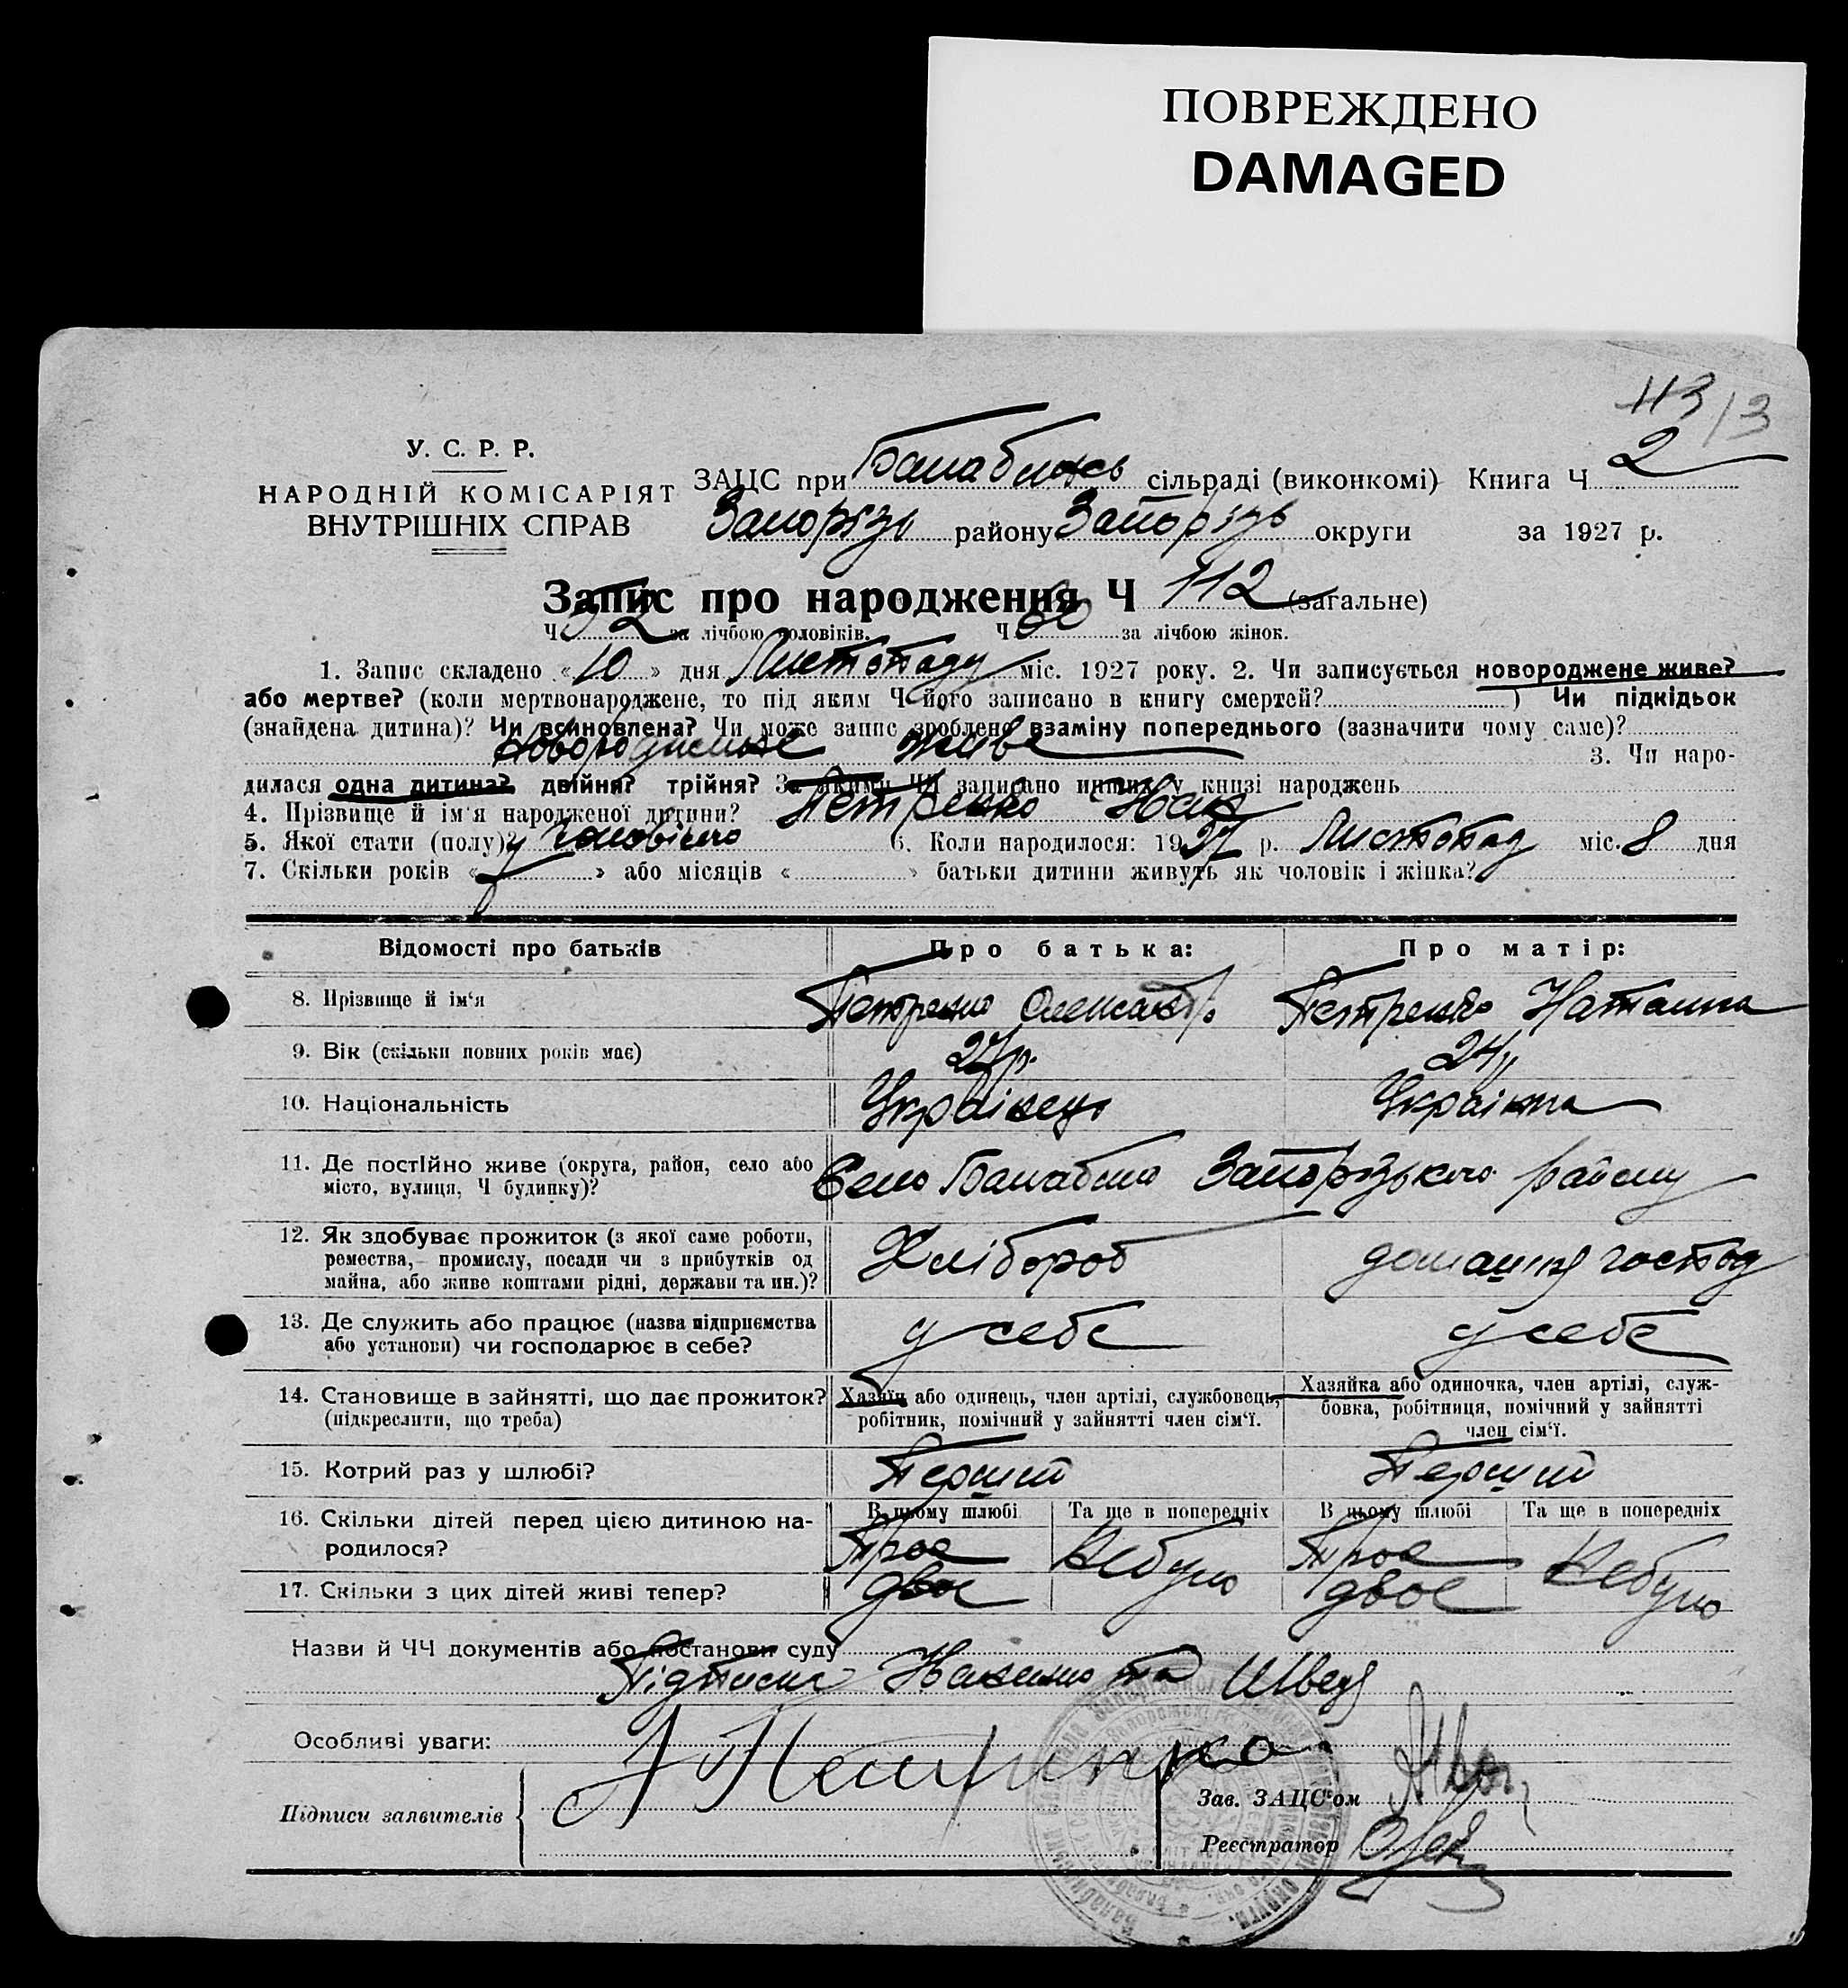 ПОВРЕЖДЕНО
DAMAGED
113 13
У. С. Р. Р.
НАРОДНІЙ КОМІСАРІЯТ
ВНУТРІШНІХ СПРАВ
ЗАЦС при Балабинсь сільраді (виконкомі) Книга Ч 2
Запорізь району Запорізь округи за 1927 р.
Запис про народження Ч 112 (загальне)
Ч 52 за лічбою чоловіків. Ч 60 за лічбою жінок.
1. Запис складено «10» дня Листопаду міс. 1927 року. 2. Чи записується новороджене живе?
або мертве? (коли мертвонароджене, то під яким Ч його записано в книгу смертей? ) Чи підкідьок
(знайдена дитина)? Чи всиновлена? Чи може запис зроблено взаміну попереднього (зазначити чому саме)?
новороджене живе 3. Чи наро-
дилася одна дитина? двійня? трійня? За якими ЧЧ записано инших у книзі народжень
4. Прізвище й ім'я народженої дитини? Петренко Іван
5. Якої стати (полу)? чоловічого 6. Коли народилося: 1927 р. Листопад міс. 8 дня
7. Скільки років « » або місяців « » батьки дитини живуть як чоловік і жінка?
Відомості про батьків Про батька: Про матір:
8. Прізвище й ім'я Петренко Олександр Петренко Наталка
9. Вік (скільки повних років має) 27 р. 24
10. Національність Українець Українка
11. Де постІйно живе (округа, район, село або
місто, вулиця, Ч будинку)? Село Балабино Запорізького району
12. Як здобуває прожиток (з якої саме роботи,
ремества, промислу, посади чи з прибутків од
майна, або живе коштами рідні, держави та ин.)? Хлібороб домашня господ
13. Де служить або працює (назва підприємства
або установи) чи господарює в себе? у себе у себе
14. Становище в зайнятті, що дає прожиток?
(підкреслити, що треба)
Хазяїн або одинець, член артілі, службовець,
робітник, помічний у зайнятті член сім'ї.
Хазяйка або одиночка, член артілі, служ-
бовка, робітниця, помічний у зайнятті
член сім'ї.
15. Котрий раз у шлюбі? Перший Перший
В цьому шлюбі Та ще в попередніх В цьому шлюбі Та ще в попередніх
16. Скільки дітей перед цією дитиною на-
родилося? Троє Небуло Троє Небуло
17. Скільки з цих дітей живі тепер? двоє двоє
Назви й ЧЧ документів або постанови суду
Підписи та Швед
Особливі уваги:
Підписи заявителів Петринко
Зав. ЗАЦС'ом
Реєстратор